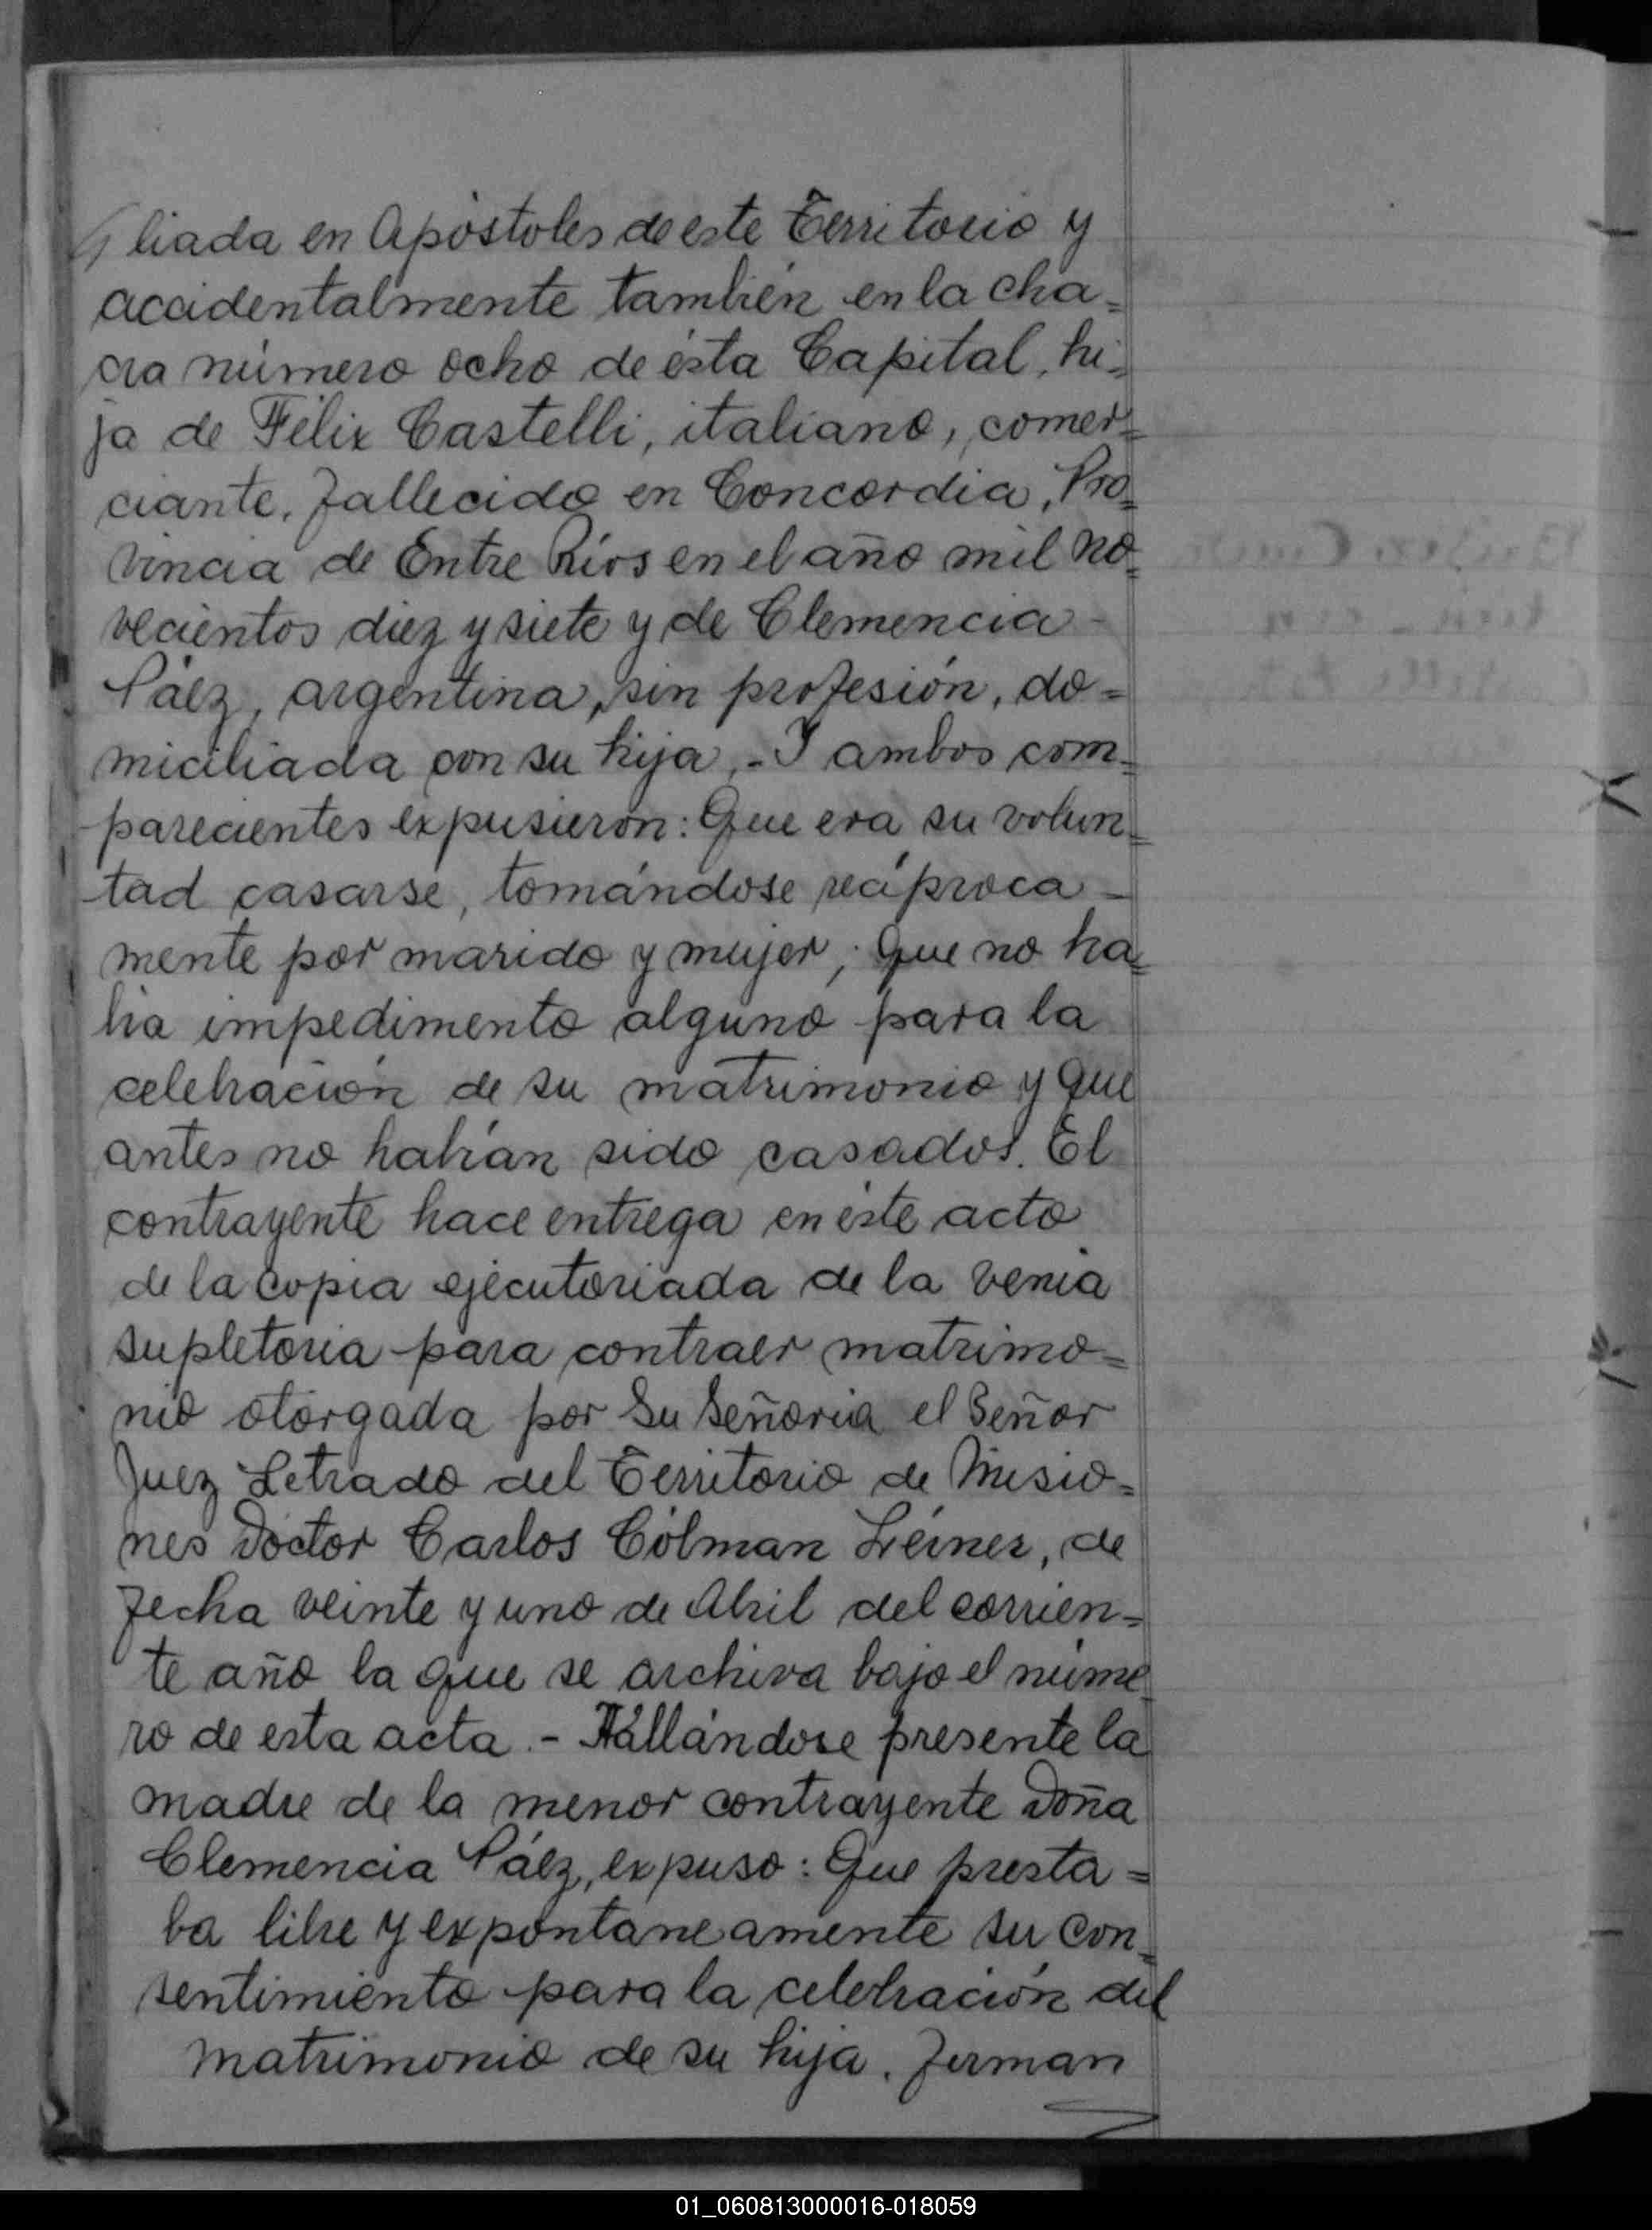 liada en Apóstoles de este Territorio y
accidentalmente también en la cha=
cra número ocho de ésta Capital, hi=
ja de Félix Castelli, italiano, comer=
ciante, fallecido en Concordia, Pro=
vincia de Entre Ríos en el año mil no=
vecientos diez y siete y de Clemencia
Páez, argentina, sin profesión, do=
miciliada con su hija.- Y ambos com=
parecientes expusieron: Que era su volun=
tad casarse, tomándose recíproca-
mente por marido y mujer; que no ha=
bia impedimento alguno para la
celebración de su matrimonio y que
antes no habían sido casados. El
contrayente hace entrega en éste acto
de la copia ejecutoriada de la venia
supletoria para contraer matrimo=
nio otorgada por Su Señoria el Señor
Juez Letrado del Territorio de Misio=
nes Doctor Carlos Cólman Léiner, de
fecha veinte y uno de Abril del corrien=
te año la que se archiva bajo el núme
ro de esta acta.- Hállándose presente la
madre de la menor contrayente Doña
Clemencia Páez, expuso: Que presta=
ba libre y expontaneamente su con=
sentimiento para la celebración del
matrimonio de su hija. Firman
01_060813000016-018059